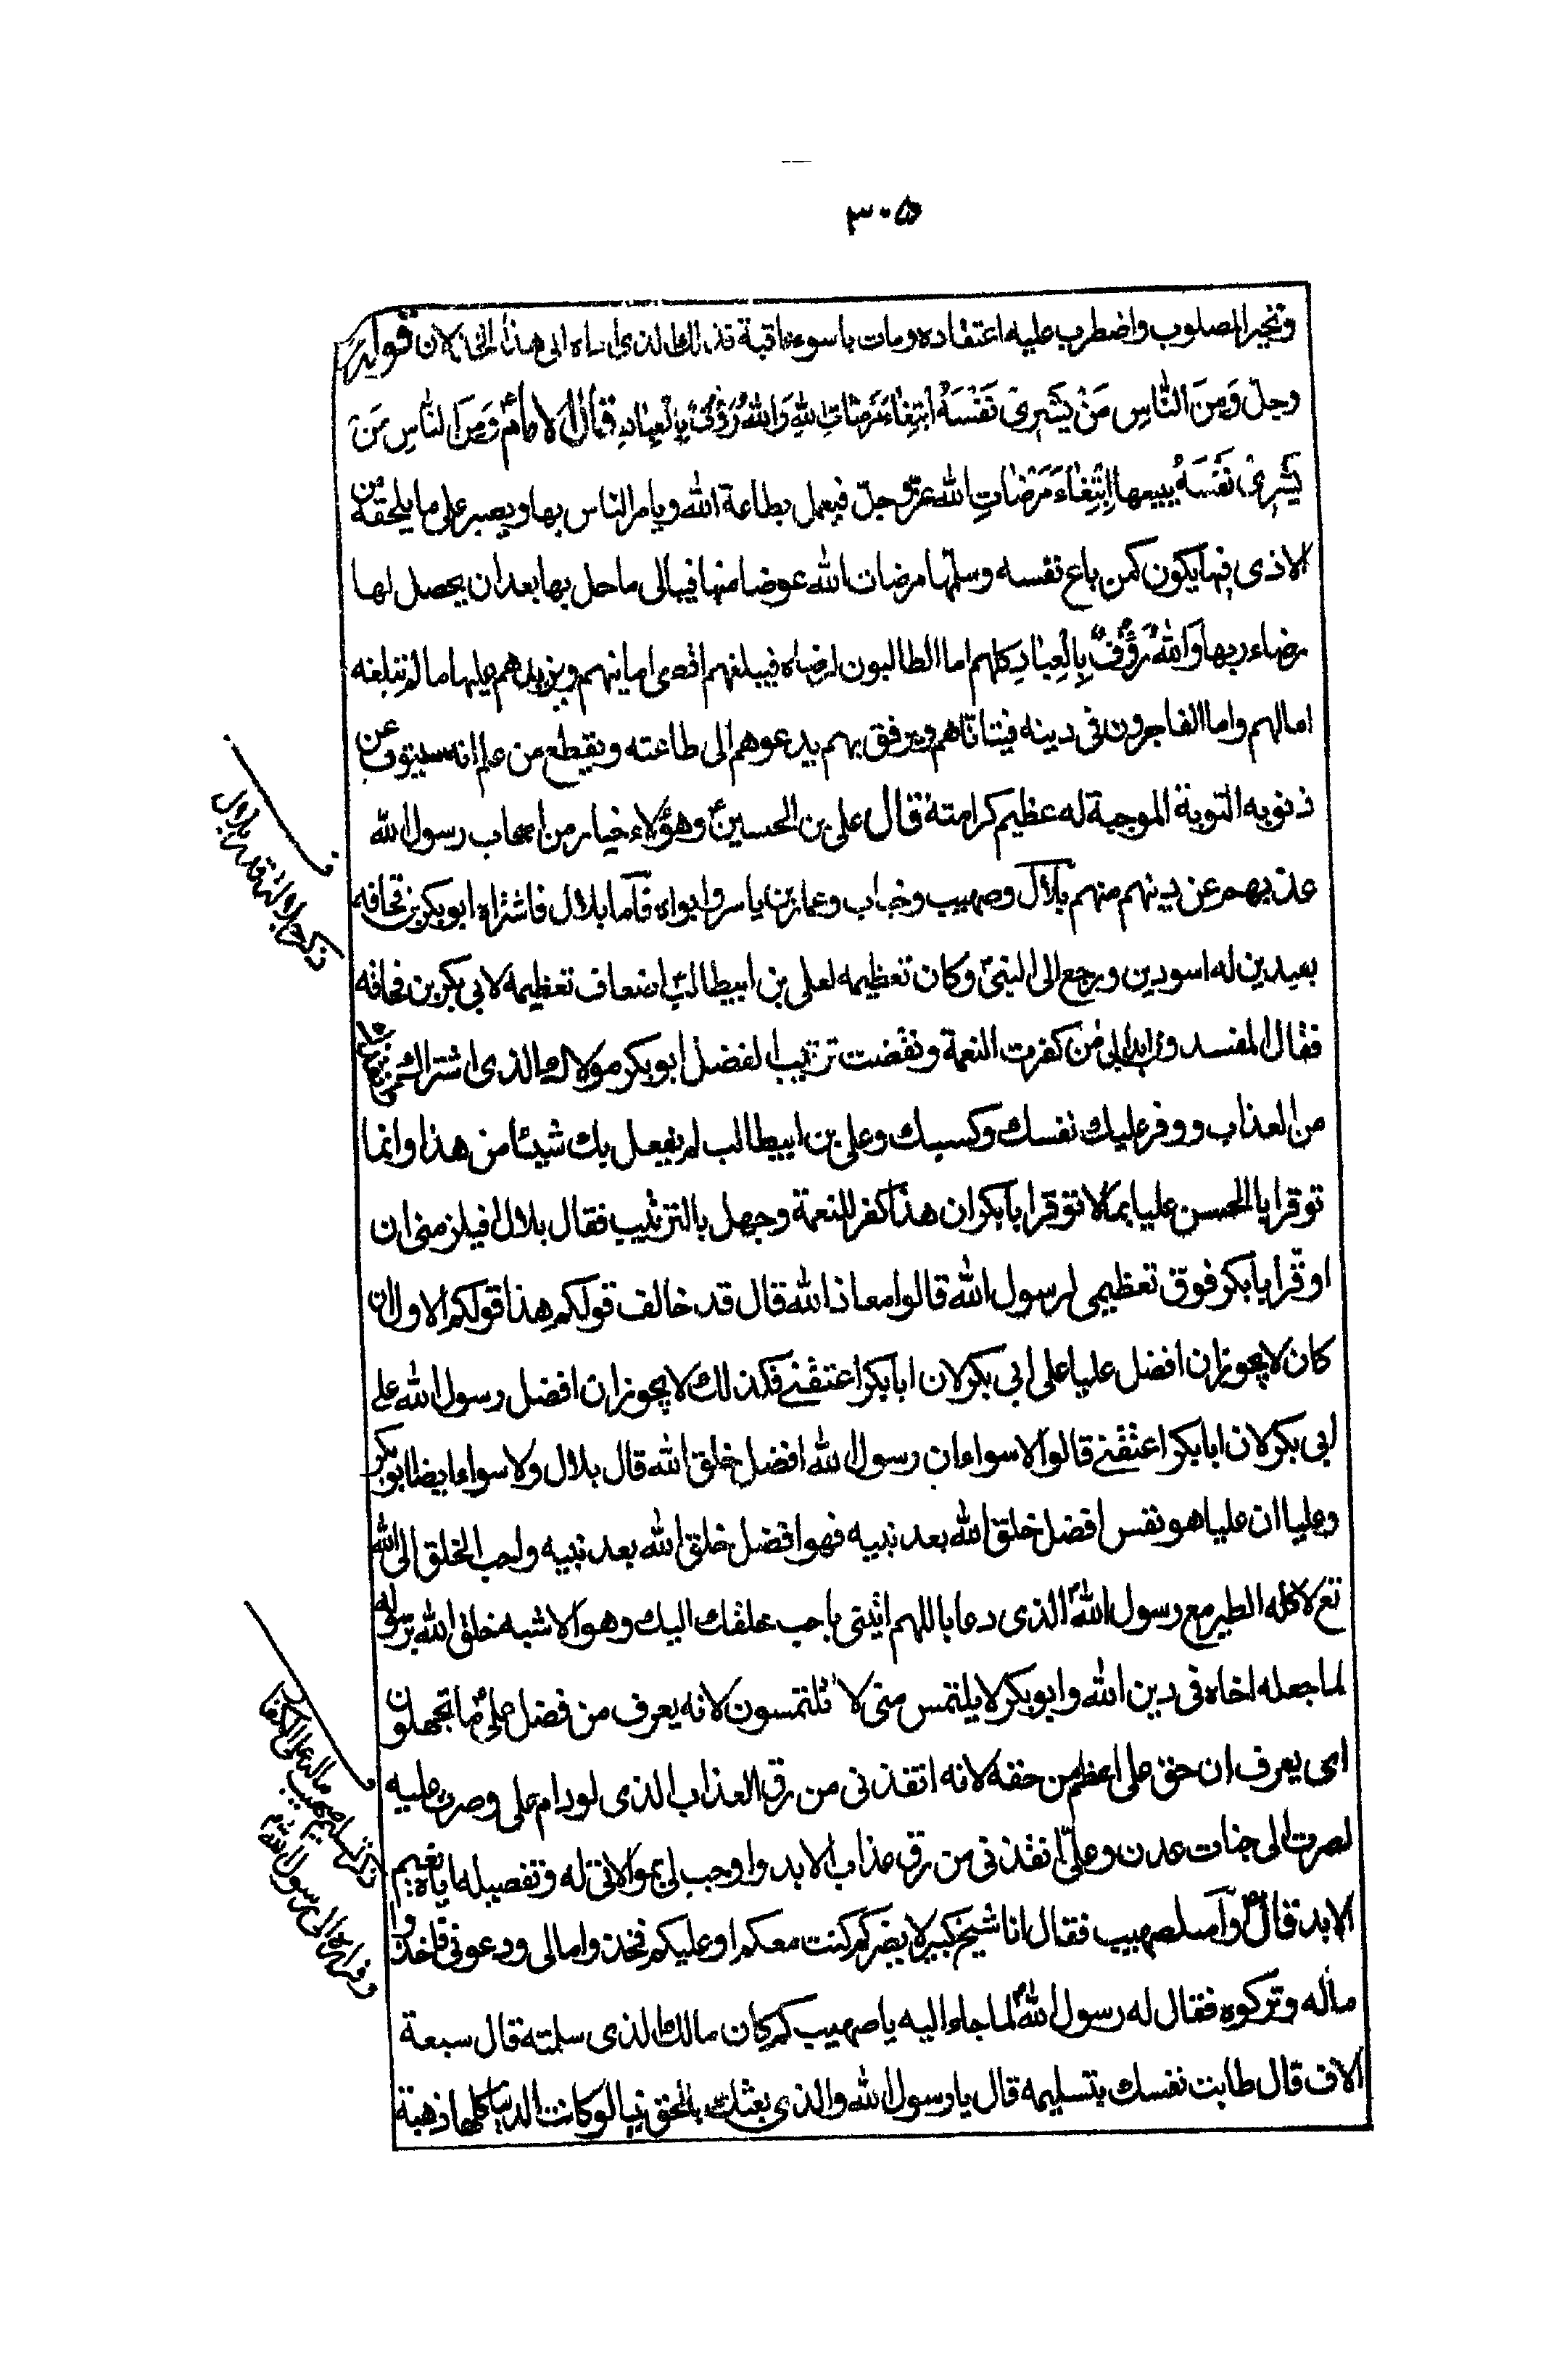 ٣٠٥
وتخير المصلوب واضطرب عليه اعتقاده ومات باسوء عاقبة فذلك الذى اداه الى هذا الخذلان قوله عز
وجل وَمِنَ النَّاسِ مَنْ يَشْرِى نَفْسَهُ ابْتِغَاءَ مَرْضَاتِ اللهِ وَاللهُ رَؤُفٌ بِالْعِبَادِ قال الامامؑ وَمِنَ النَّاسِ مَنْ
يَشْرِى نَفْسَهُ يبيعها ابْتِغَاءَ مَرْضَاتِ اللهِ عزّ وجلّ فيعمل بطاعة الله ويامر الناس بها ويصبر على ما يلحقه من
الاذى فيها يكون كمن باع نفسه وسلّمها مرضات الله عوضا منها فيبالى ما حل بها بعد ان يحصل لها
رضاء ربها وَاللهُ رَؤُفٌ بِالْعِبَادِ كلهم اما الطالبون لرضاه فيبلغهم اقصى امانيهم ويزيدهم عليها ما لم تبلغه
امالهم واما الفاجرون فى دينه فيتاناهم ويرفق بهم يدعوهم الى طاعته ويقطع من علم انه سيتوب عن
ذنوبه التوبة الموجبة له عظيم كرامته قال على بن الحسينؑ وهؤلاء خيار من اصحاب رسول الله
عذبهم عن دينهم منهم بلال وصهيب وخباب وعمار بن ياسر وابواه فاما بلال فاشتراه ابو بكر بن قحافه
بعبدين له اسودين ورجع الى النبىؐ وكان تعظيمه لعلى بن ابيطالبؑ اضعاف تعظيمه لابى بكر بن قحافه
فقال المفسدون يا بلال كفرت النعمة ونقضت ترتيب الفضل ابو بكر مولاك الذى اشتراك
من العذاب ووفر عليك نفسك وكسبك وعلى بن ابيطالب لم يفعل بك شيئا من هذا وانما
توقر ابا الحسن عليا بما لا توقر ابا بكر ان هذا كفر للنعمة وجهل بالترتيب فقال بلال افيلزمنى ان
اوقّر ابا بكر فوق تعظيمى لرسول الله قالوا معاذ الله قال قد خالف قولكم هذا قولكم الاول ان
كان لا يجوز ان افضل عليا على ابى بكر لان ابا بكر اعتقنى فكذلك لا يجوز ان افضل رسول الله على
ابى بكر لان ابا بكر اعتقنى قالوا لا سواء ان رسول الله افضل خلق الله قال بلال ولا سواء ايضا ابو بكر
وعليا ان عليا هو نفس افضل خلق الله بعد نبيه فهو افضل خلق الله بعد نبيه واحب الخلق الى الله
تع لاكله الطير مع رسول اللهؐ الذى دعا باللهم ائتنى باحب خلقك اليك وهو الاشبه خلق الله برسوله
لما جعله اخاه فى دين الله وابو بكر لا يلتمس منى لا تلتمسون لانه يعرف من فضل علىؑ ما تجهلون
اى يعرف ان حق على اعظم من حقه لانه انقذنى من رق العذاب الذى لو دام على وصبرت عليه
لصرت الى جنات عدن وعلىّ انقذنى من رق عذاب الابد واوجب لى بموالاتى له وتفضيله اياه نعيم
الابد قالؑ واما صهيب فقال انا شيخ كبير لا يضركم كنت معكم او عليكم فخذوا مالى ودعونى فاخذوا
ماله وتركوه فقال له رسول اللهؐ لما جاء اليه يا صهيب كم كان مالك الذى سلمته قال سبعة
الاف قال طابت نفسك بتسليمه قال يا رسول الله والذى بعثك بالحق نبيا لو كانت الدنيا كلها ذهبة
صهيب ماله على الكفار
وفراره الى رسول اللهؐ